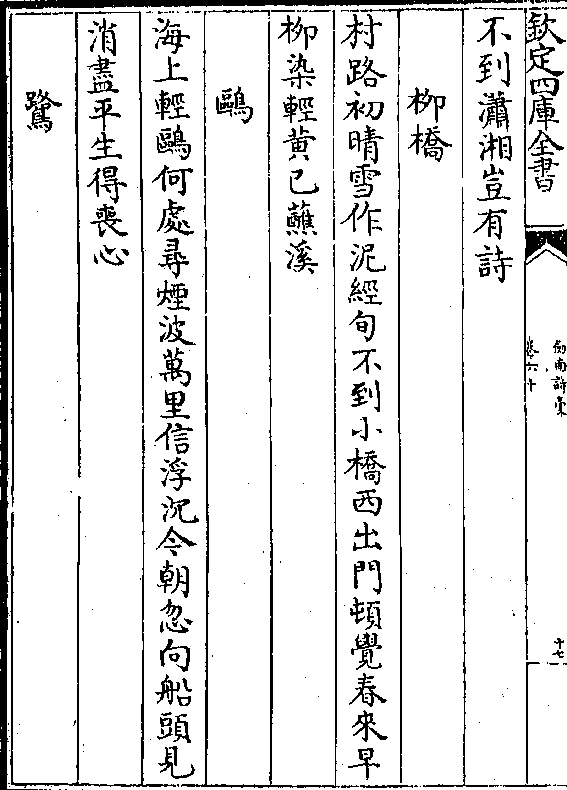 欽定四庫全書
劍南詩稾
卷六十
十七
不到瀟湘豈有詩
柳橋
村路初晴雪作泥經旬不到小橋西出門頓覺春來早
柳染輕黄已蘸溪
鷗
海上輕鷗何處尋煙波萬里信浮沉今朝忽向船頭見
消盡平生得喪心
鷺